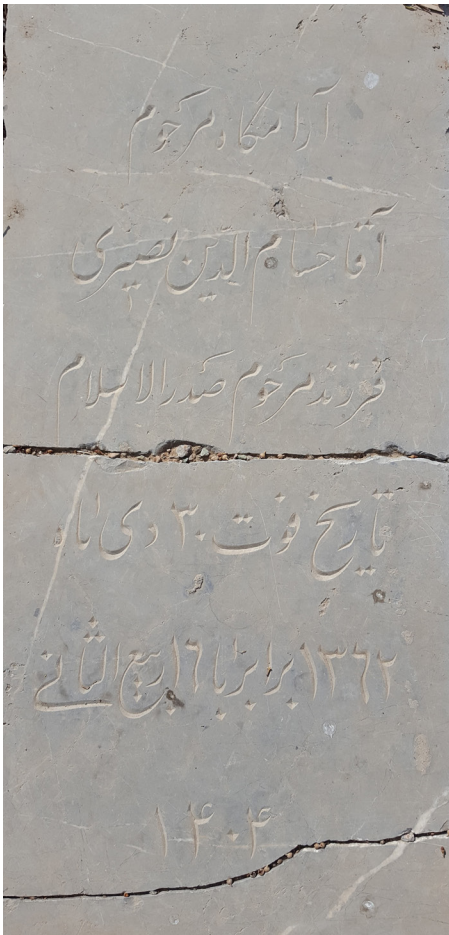 آرامگاه مرحوم
آقا حسام الدین نصیری
فرزند مرحوم صدرالاسلام
تاریخ فوت ۳۰ دی ماه
۱۳۶۲ برابر با ۱۶ ربیع الثانی
۱۴۰۴